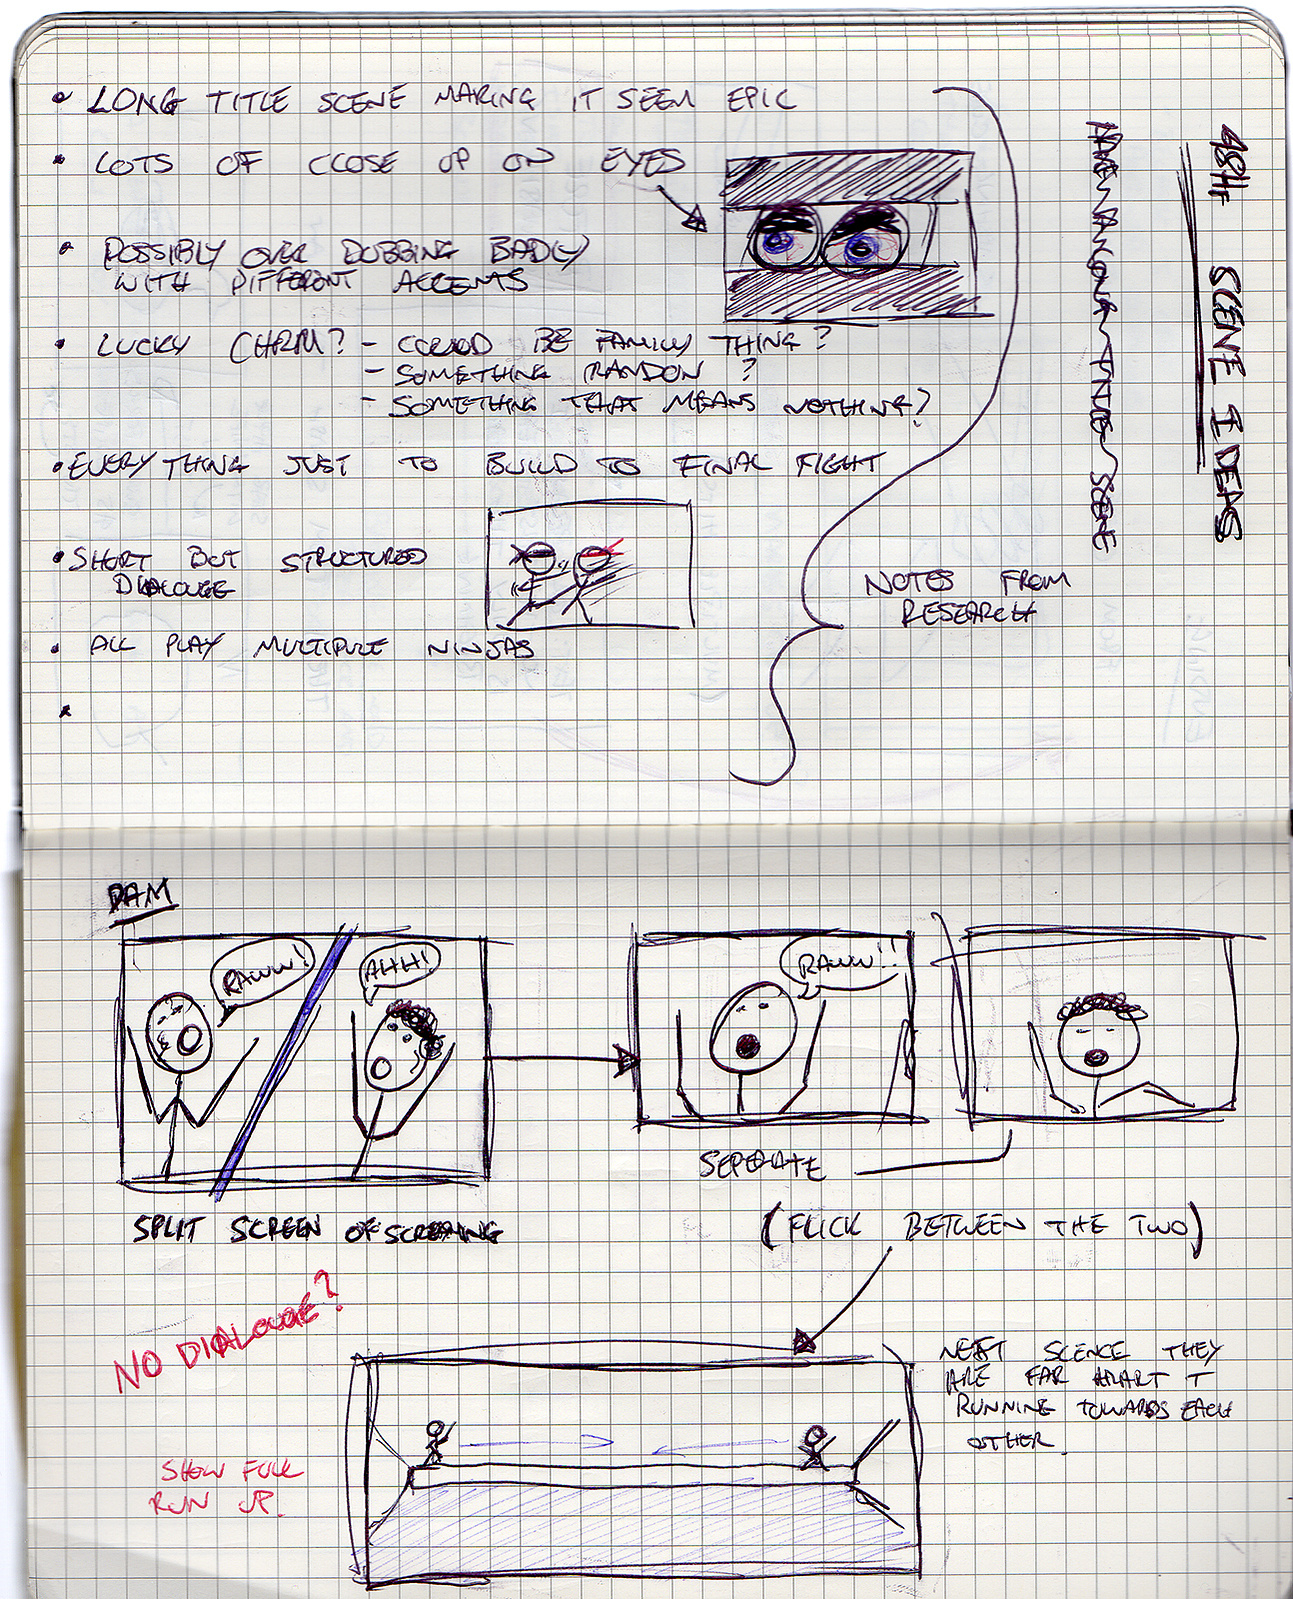 48Hr SCENE IDEAS
SCENE
• LONG TITLE SCENE MAKING IT SEEM EPIC
• LOTS OF CLOSE UP ON EYES
• POSSIBLY OVER DUBBING BADLY
WITH DIFFERENT ACCENTS
• LUCKY CHRM? - COULD BE FAMILY THING?
- SOMETHING RANDON ?
- SOMETHING THAT MEANS NOTHING?
• EVERYTHING JUST TO BUILD TO FINAL FIGHT
• SHORT BUT STRUCTURED
DIALOUGE
• ALL PLAY MULTIPULE NINJAS
NOTES FROM
RESEARCH
RAWW!
AHH!
RAWW!!
SEPERATE
SPLIT SCREEN OF SCREAMING
(FLICK BETWEEN THE TWO)
NO DIALOUGE?
NEXT SCENCE THEY
ARE FAR APART +
RUNNING TOWARDS EACH
OTHER.
SHOW FULL
RUN UP.